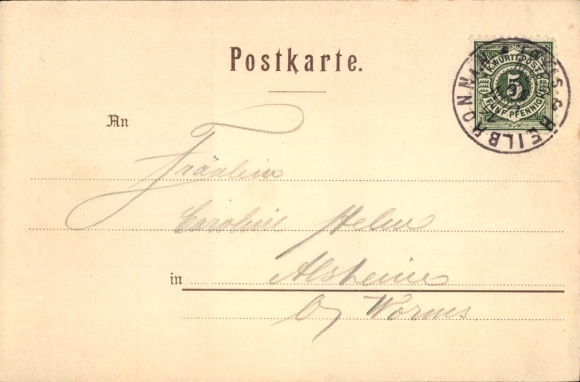 Postkarte.
K. WÜRTT. POST
5
FÜNF PFENNIG
HEILBRONN
An
Fräulein
Caroline Helm
in Alsheim
b/ Worms